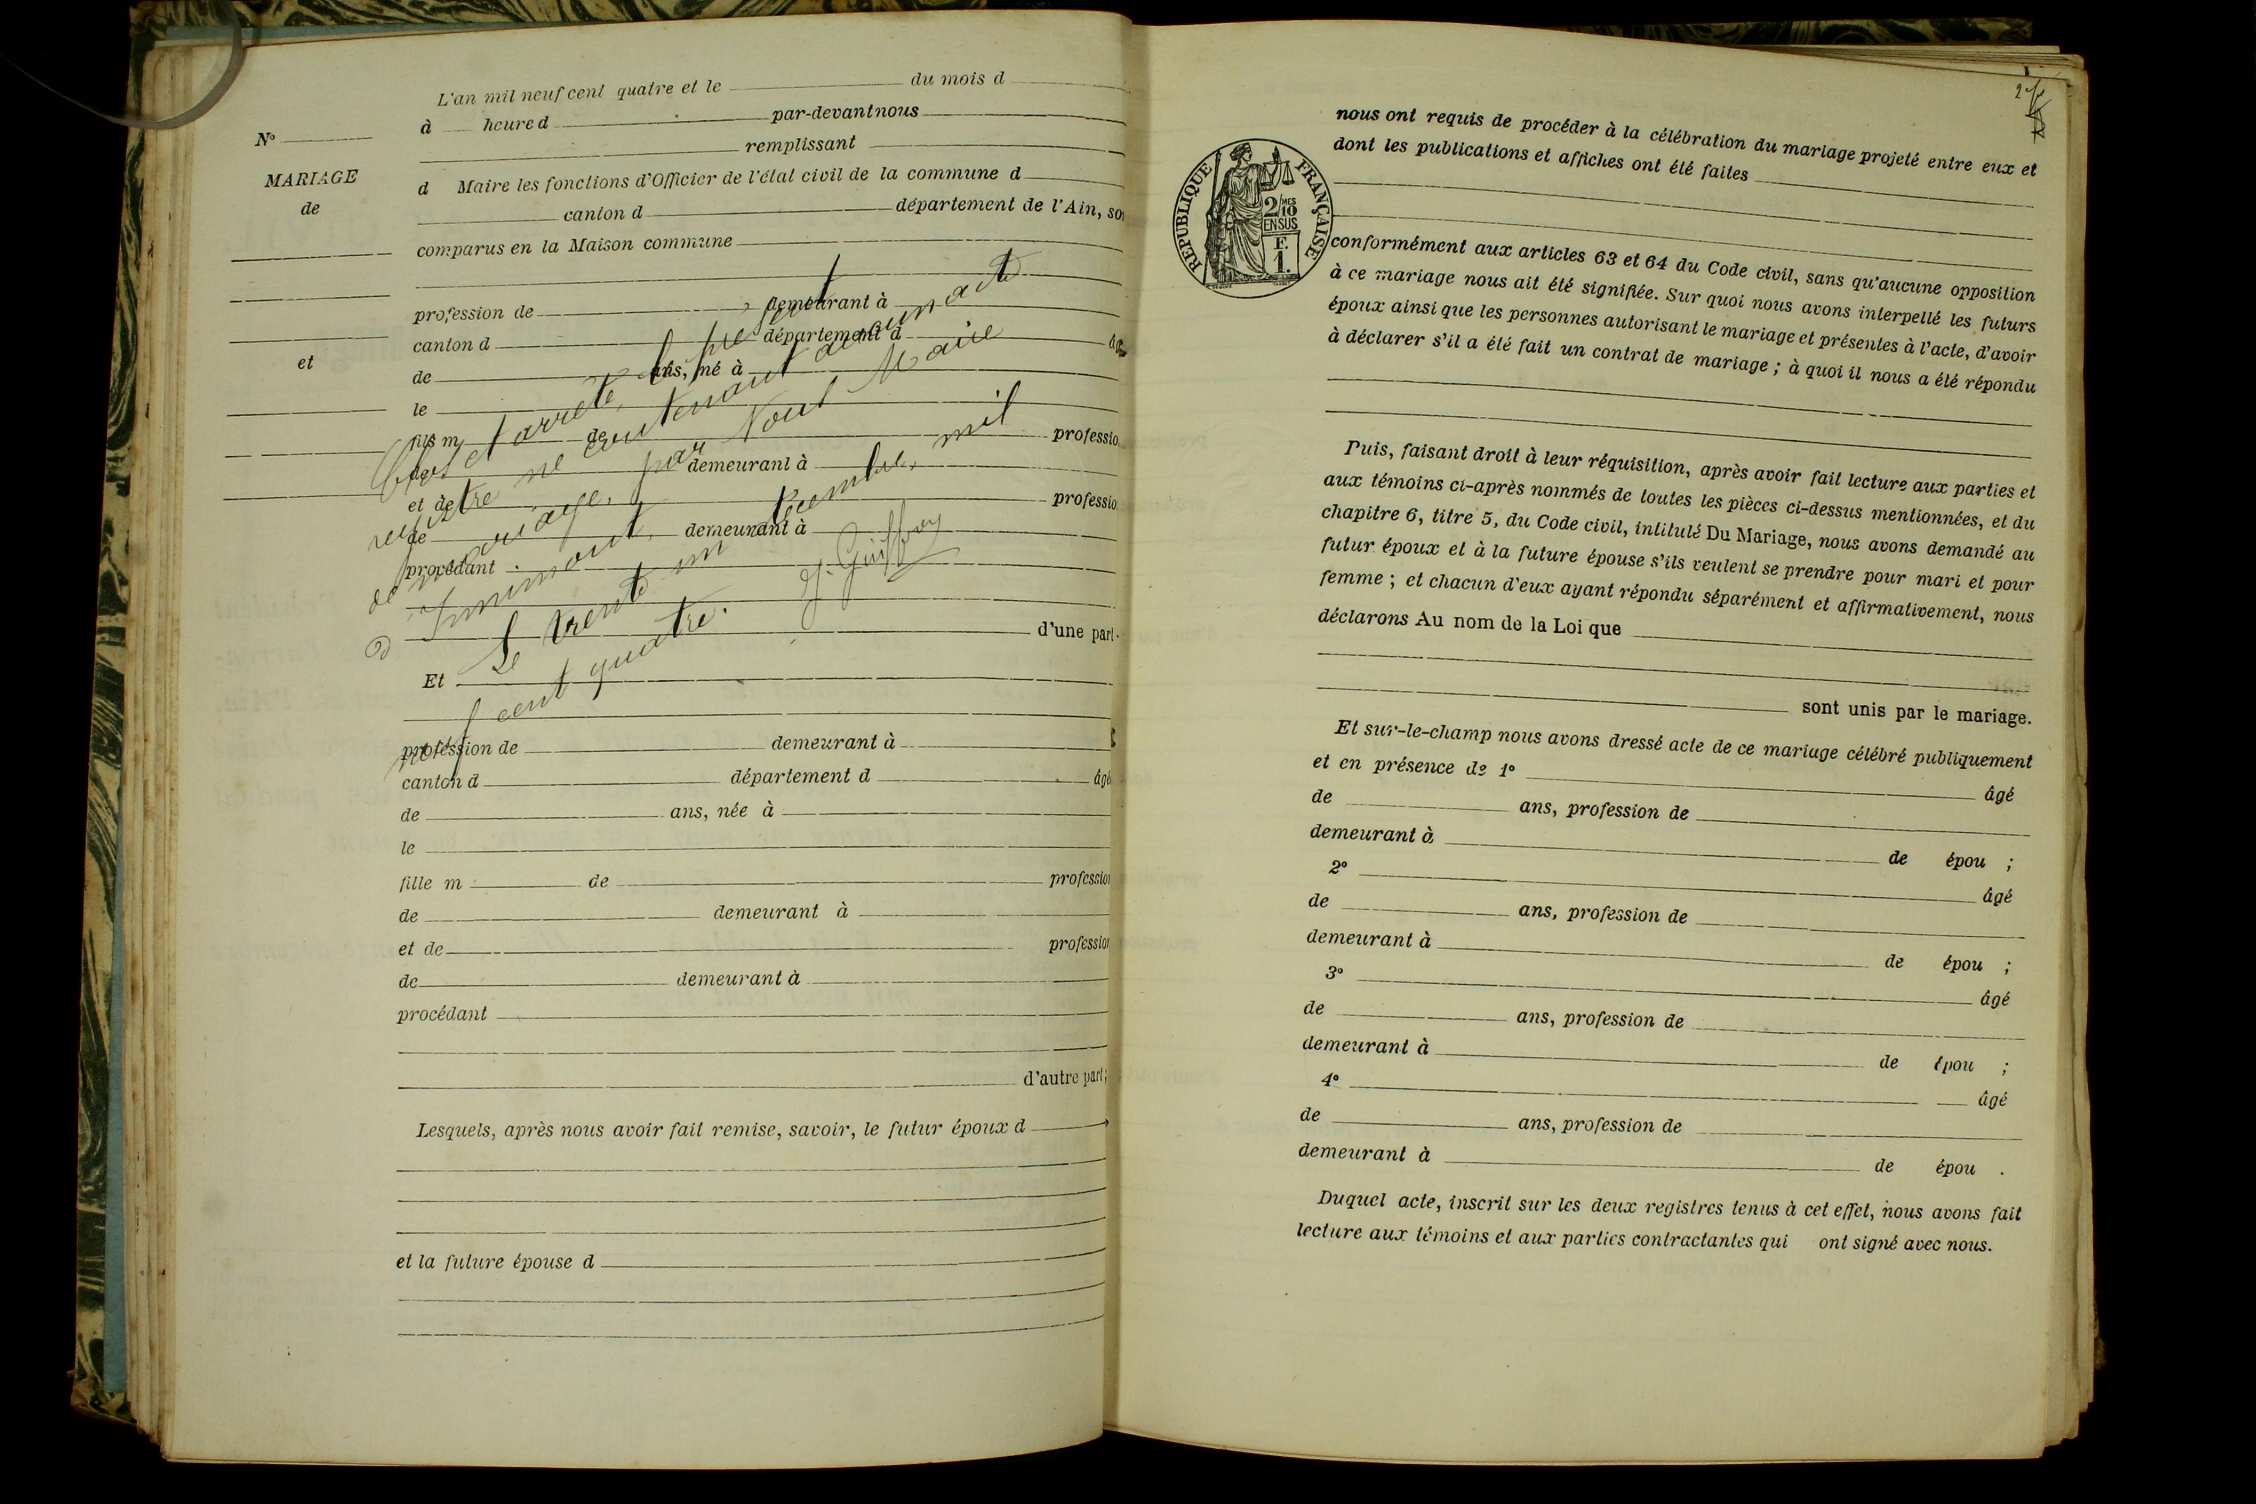 L'an mil neuf cent quatre et le du mois d
à heure d par-devant nous
remplissant
d Maire les fonctions d'Officier de l'état civil de la commune d
canton d département de l'Ain, so
comparus en la Maison commune
profession de demeurant à
canton d département d âg
de ans, né à
le
fils m de professio
de demeurant à
et de professio
de demeurant à
procédant
d'une part
Et
profession de demeurant à
canton d département d âgé
de ans, née à
le
fille m de profession
de demeurant à
et de profession
de demeurant à
procédant
d'autre part;
Lesquels, après nous avoir fait remise, savoir, le futur époux d
et la future épouse d
N°
MARIAGE
de
et
Clos et arrêté, le présent
registre ne contenant aucun acte
de mariage, par Nous Maire
d'Innimont,
Le trente un décembre, mil
neuf cent quatre.
J. Guiffray
nous ont requis de procéder à la célébration du mariage projeté entre eux et
dont les publications et affiches ont été faites
RÉPUBLIQUE FRANÇAISE
2/10 MES
EN SUS
F.
1.
conformément aux articles 63 et 64 du Code civil, sans qu'aucune opposition
à ce mariage nous ait été signifiée. Sur quoi nous avons interpellé les futurs
époux ainsi que les personnes autorisant le mariage et présentes à l'acte, d'avoir
à déclarer s'il a été fait un contrat de mariage ; à quoi il nous a été répondu
Puis, faisant droit à leur réquisition, après avoir fait lecture aux parties et
aux témoins ci-après nommés de toutes les pièces ci-dessus mentionnées, et du
chapitre 6, titre 5, du Code civil, intitulé Du Mariage, nous avons demandé au
futur époux et à la future épouse s'ils veulent se prendre pour mari et pour
femme ; et chacun d'eux ayant répondu séparément et affirmativement, nous
déclarons Au nom de la Loi que
sont unis par le mariage.
Et sur-le-champ nous avons dressé acte de ce mariage célébré publiquement
et en présence de 1° âgé
de ans, profession de
demeurant à de épou ;
2° âgé
de ans, profession de
demeurant à de épou ;
3° âgé
de ans, profession de
demeurant à de épou ;
4° âgé
de ans, profession de
demeurant à de épou .
Duquel acte, inscrit sur les deux registres tenus à cet effet, nous avons fait
lecture aux témoins et aux parties contractantes qui ont signé avec nous.